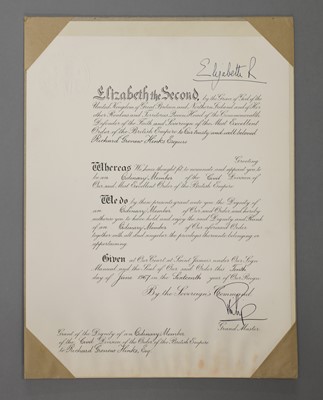 Elizabeth R
Elizabeth the Second, by the Grace of God of the
United Kingdom of Great Britain and Northern Ireland and of His
other Realms and Territories Queen, Head of the Commonwealth,
Defender of the Faith and Sovereign of the Most Excellent
Order of the British Empire to Our trusty and well beloved
Richard Esquire
Greeting
Whereas We have thought fit to nominate and appoint you to
be an Ordinary Member of the Civil Division of
Our said Most Excellent Order of the British Empire
We do by these presents grant unto you the Dignity of
an Ordinary Member of Our said Order and hereby
authorise you to have hold and enjoy the said Dignity and Rank
of an Ordinary Member of Our aforesaid Order
together with all and singular the privileges thereunto belonging or
appertaining.
Given at Our Court at Saint James's under Our Sign
Manual and the Seal of Our said Order this Tenth
day of June 1967 in the Sixteenth year of Our Reign.
By the Sovereign's Command.
Grand Master.
Grant of the Dignity of an Ordinary Member
of the Civil Division of the Order of the British Empire
to Richard Esq.